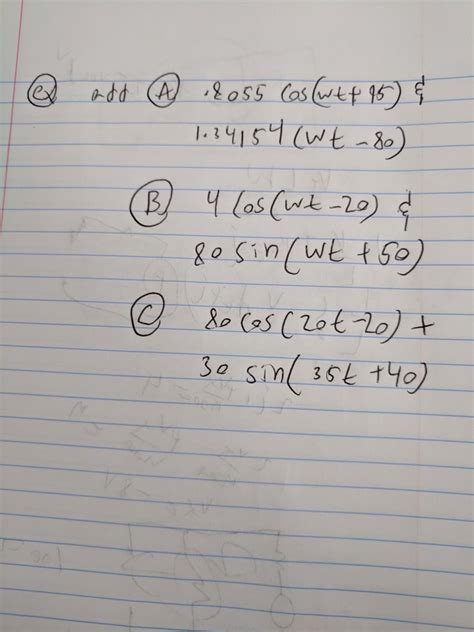 ex add A .8055 cos(wt+95) &
1.34154 (wt -80)
B 4 cos(wt-20) &
80 sin(wt +50)
C 80 cos(20t-20) +
30 sin(35t +40)